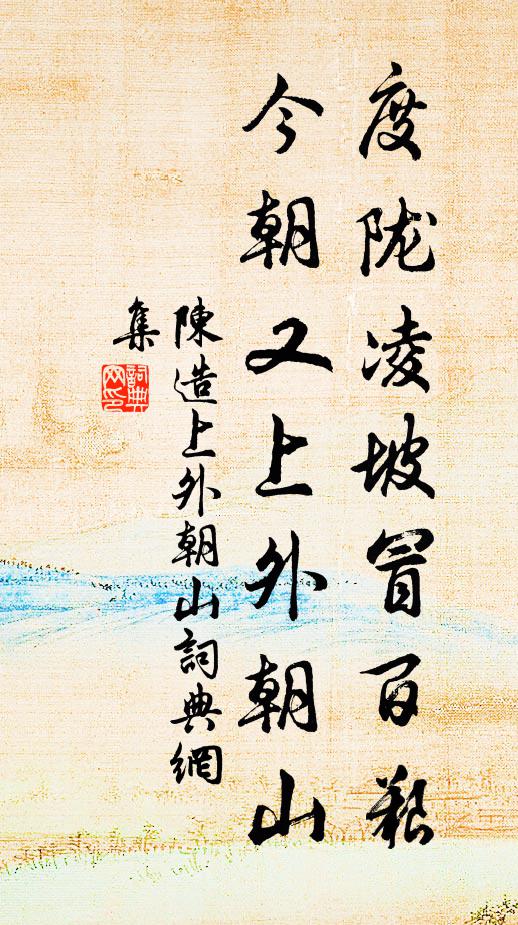 度陇凌坡冒百艰
今朝又上外朝山
陳造上外朝山詞典網
集
詞典網印